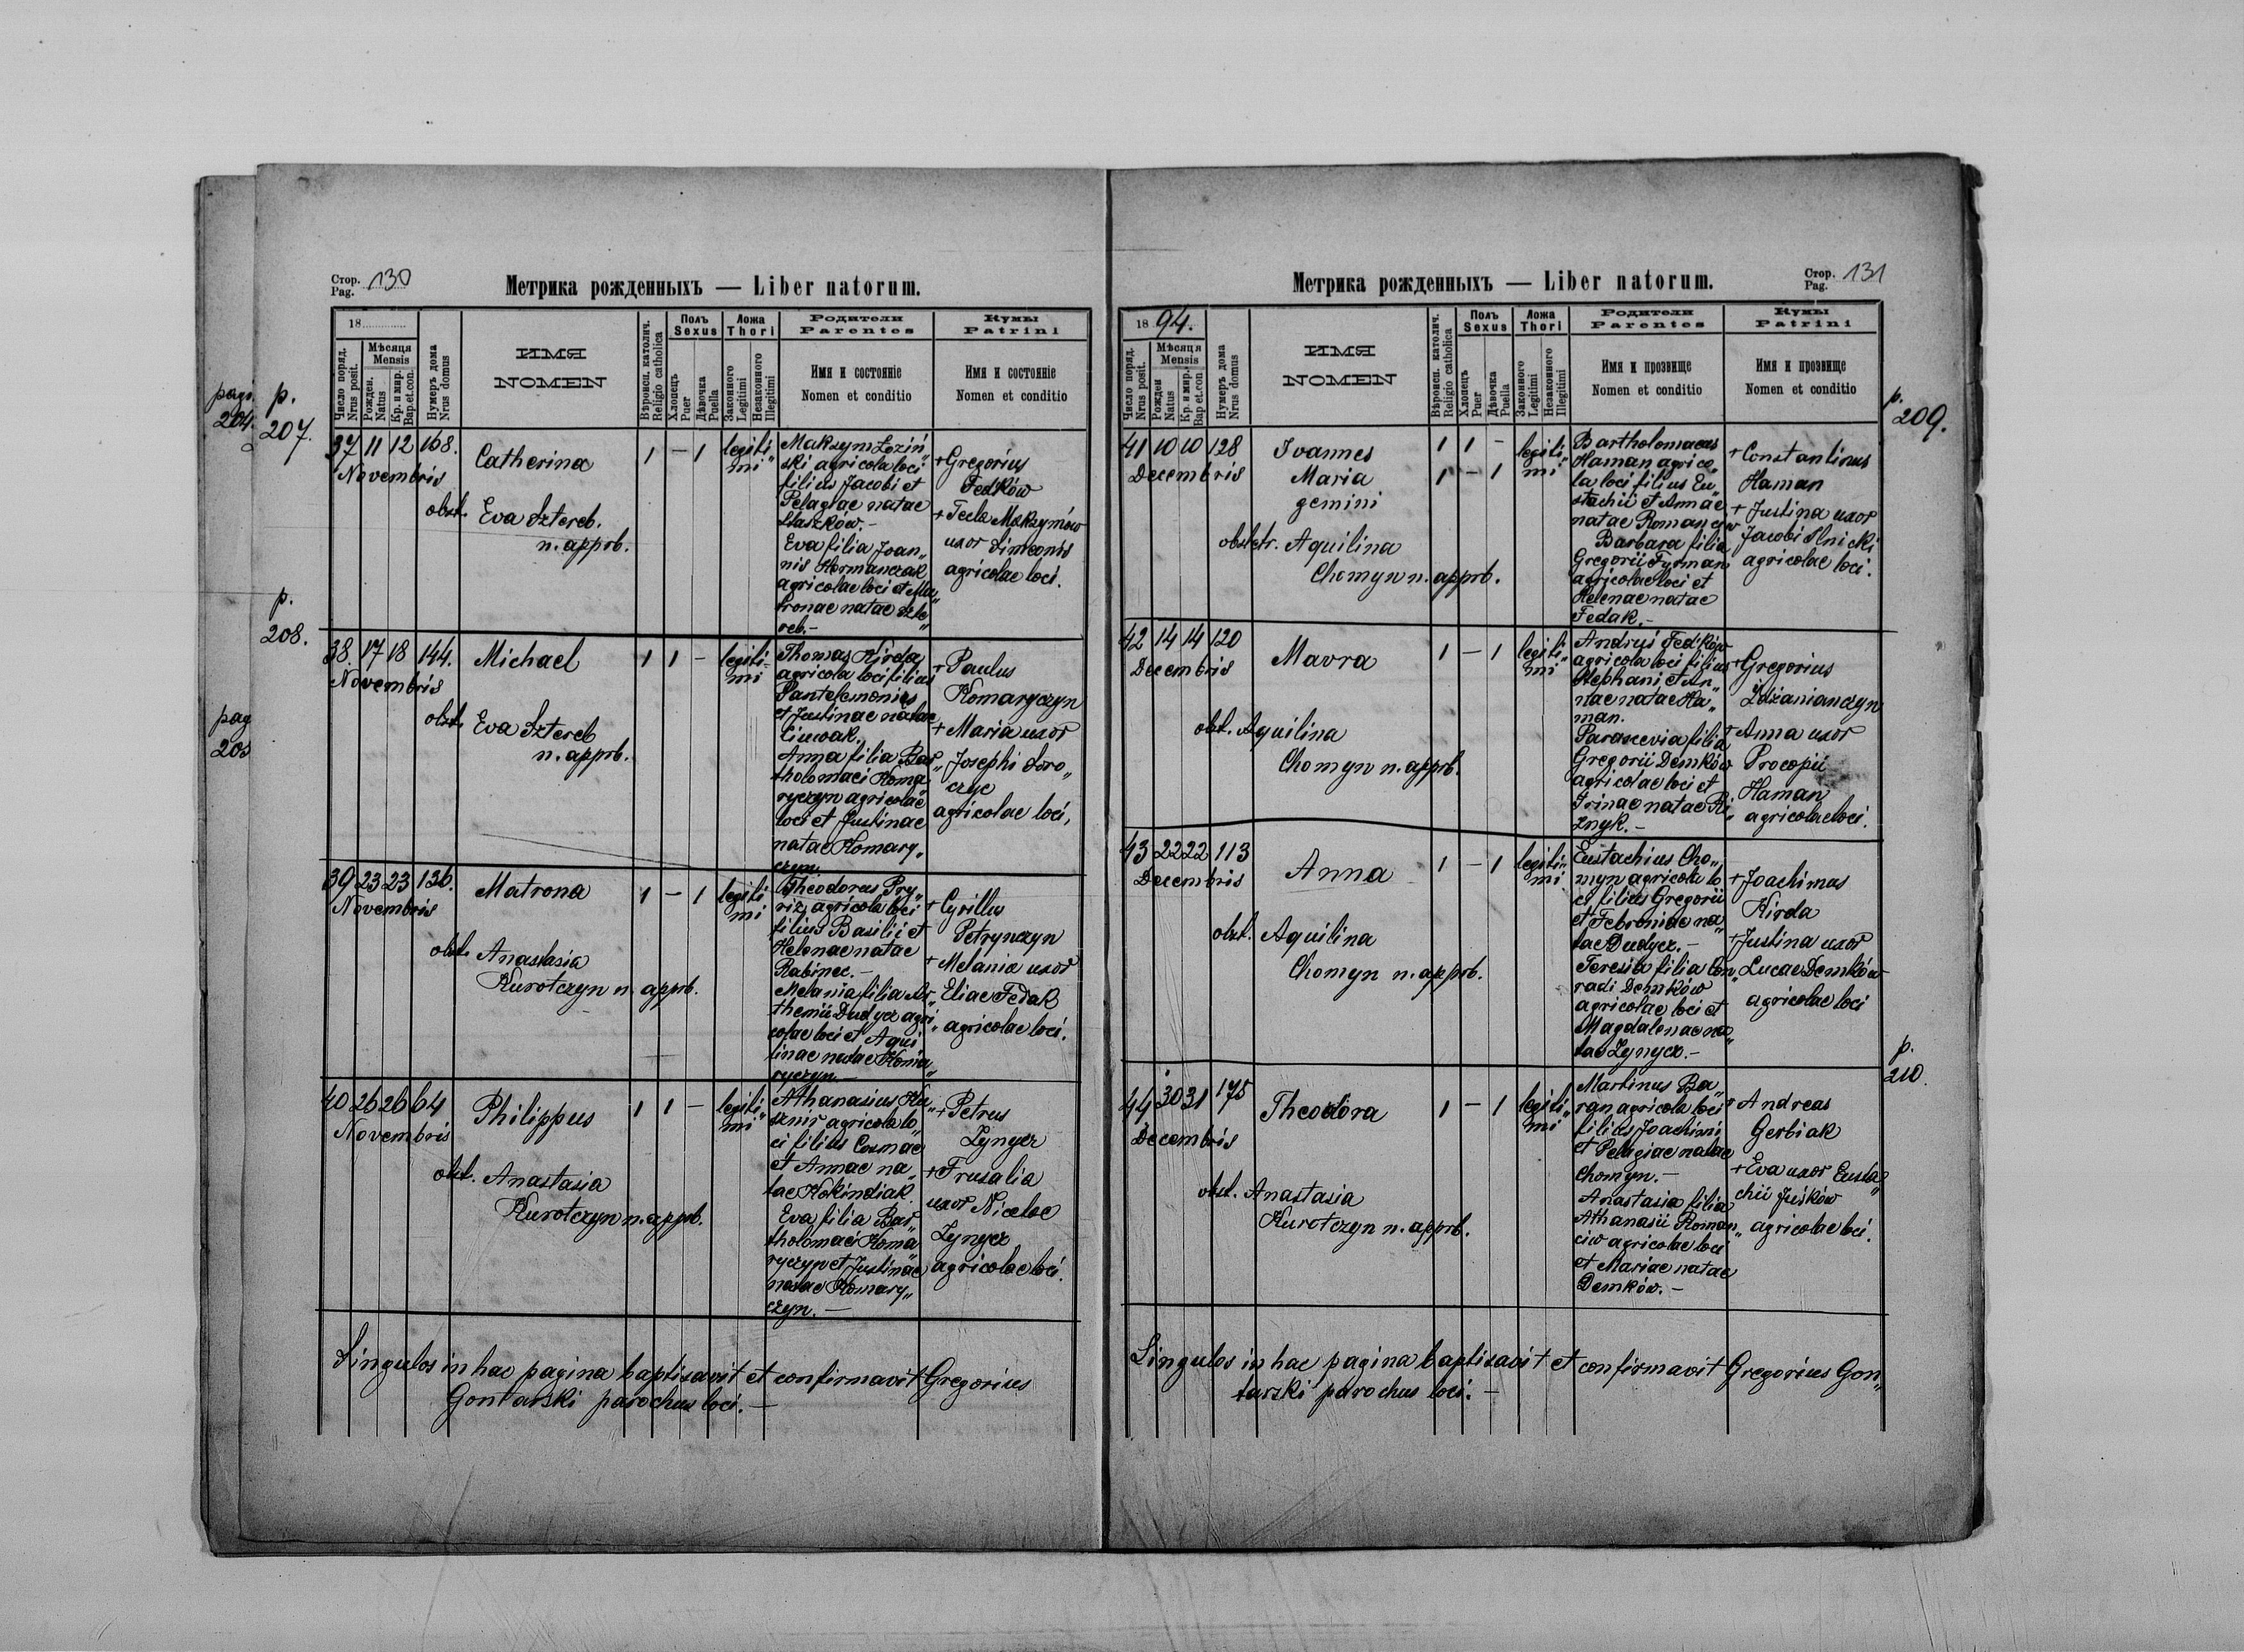 pagi.
204.
p.
207.
p.
208.
pag
205
Стор.
Pag. 130
Метрика рожденныхъ — Liber natorum.
18
Число поряд.
Nrus posit.
Мѣсяця
Mensis
Рожден.
Natus
Кр. и мир.
Bap.et.con.
Нумеръ дома
Nrus domus
ИМЯ
NOMEN
Вѣроисп. католич.
Religio catholica
Полъ
Sexus
Хлопецъ
Puer
Дѣвочка
Puella
Ложа
Thori
Законного
Legitimi
Незаконного
Illegitimi
Родители
Parentes
Имя и состояніе
Nomen et conditio
Кумы
Patrini
Имя и состояніе
Nomen et conditio
37 11 12 168.
Novembris
Catherina
obst. Eva Sztereb.
n. approb.
1 — 1
legiti„
mi
Maksym Łoziń„
ski agricola loci
filius Jacobi et
Pelagiae natae
Staszków. —
Eva filia Joan„
nis Hormanczak
agricolae loci et Ma„
tronae natae Szte„
reb. —
+ Gregorius
Fedków
+ Tecla Maksymów
uxor Simeonis
agricolae loci.
38. 17 18 144.
Novembris
Michael
obst. Eva Sztereb
n. approb.
1 1 —
legiti„
mi
Thomas Kirda
agricola loci filius
Pantelemonius
et Justinae natae
Anna filia Bar„
tholomaei Koma„
ryczyn agricolae
loci et Justinae
natae Komary„
czyn.
+ Paulus
Komaryczyn
+ Maria uxor
Josephi Soro„
czyc
agricolae loci,
39 23 23 136.
Novembris
Matrona
obst. Anastasia
Kurotczyn n. approb.
1 — 1
legiti„
mi
Theodorus Pry„
riz agricola loci
filius Basilii et
Helenae natae
Rabinec. —
Melania filia Ar„
themii Dudycz agri„
colae loci et Aqui„
linae natae Koma„
ryczyn. —
+ Cyrillus
Petrynczyn
+ Melania uxor
Eliae Fedak
agricolae loci.
40 26 26 64
Novembris
Philippus
obst. Anastasia
Kurotczyn n. approb.
1 1 —
legiti„
mi
Athanasius Ku„
sznir agricola lo„
ci filius Cosmae
et Annae na„
tae Kokindiak.
Eva filia Bar„
tholomaei Koma„
ryczyn et Justinae
natae Komary„
czyn. —
+ Petrus
Zynycz
+ Frusalia
uxor Nicolae
Zynycz
agricolae loci.
Singulos in hac pagina baptisavit et confirmavit Gregorius
Gontarski parochus loci. —
Метрика рожденныхъ — Liber natorum.
Стор.
Pag. 131
p.
209.
p.
210.
18 94.
Число поряд.
Nrus posit.
Мѣсяця
Mensis
Рожден
Natus
Кр. и мир.
Bap et con
Нумеръ дома
Nrus domus
ИМЯ
NOMEN
Вѣроисп. католич.
Religio catholica
Полъ
Sexus
Хлопецъ
Puer
Дѣвочка
Puella
Ложа
Thori
Законного
Legitimi
Незаконного
Illegitimi
Родители
Parentes
Имя и прозвище
Nomen et conditio
Кумы
Patrini
Имя и прозвище
Nomen et conditio
41 10 10 128
Decembris
Ioannes
Maria
gemini
obstetr. Aquilina
Chomyn n. approb.
1 1 —
1 — 1
legiti„
mi
Bartholomaeus
Haman agrico„
la loci filius Eu„
stachii et Annae
natae Romanciw
Barbara filia
Gregorii Fyrman
agricolae loci et
Helenae natae
Fedak. —
+ Constantinus
Haman
+ Justina uxor
Jacobi Ilnicki
agricolae loci.
42 14 14 120
Decembris
Mavra
obst. Aquilina
Chomyn n. approb.
1 — 1
legiti„
mi
Andruś Fedków
agricola loci filius
Stephani et An„
nae natae Ha„
man.
Parascevia filia
Gregorii Demków
agricolae loci et
Irinae natae Ri„
znyk. —
+ Gregorius
Zdżanianczyn
+ Anna uxor
Procopii
Haman
agricolae loci.
43 22 22 113
Decembris
Anna
obst. Aquilina
Chomyn n. approb.
1 — 1
legiti„
mi
Eustachius Cho„
myn agricola lo„
ci filius Gregorii
et Febroniae na„
tae Dudycz. —
Teresia filia Con„
radi Demków
agricolae loci et
Magdalenae na„
tae Zynycz. —
+ Joachimus
Kirda
+ Justina uxor
Lucae Demków
agricolae loci
44 30 31 175
Decembris
Theodora
obst. Anastasia
Kurotczyn n. approb.
1 — 1
legiti„
mi
Martinus Ba„
ran agricola loci
filius Joachimi
et Pelagiae natae
Chomyn. —
Anastasia filia
Athanasii Roman„
ciw agricolae loci
et Mariae natae
Demków. —
+ Andreas
Gerbiak
+ Eva uxor Eusta„
chii Juśków
agricolae loci.
Singulos in hac pagina baptisavit et confirmavit Gregorius Gon„
tarski parochus loci. —